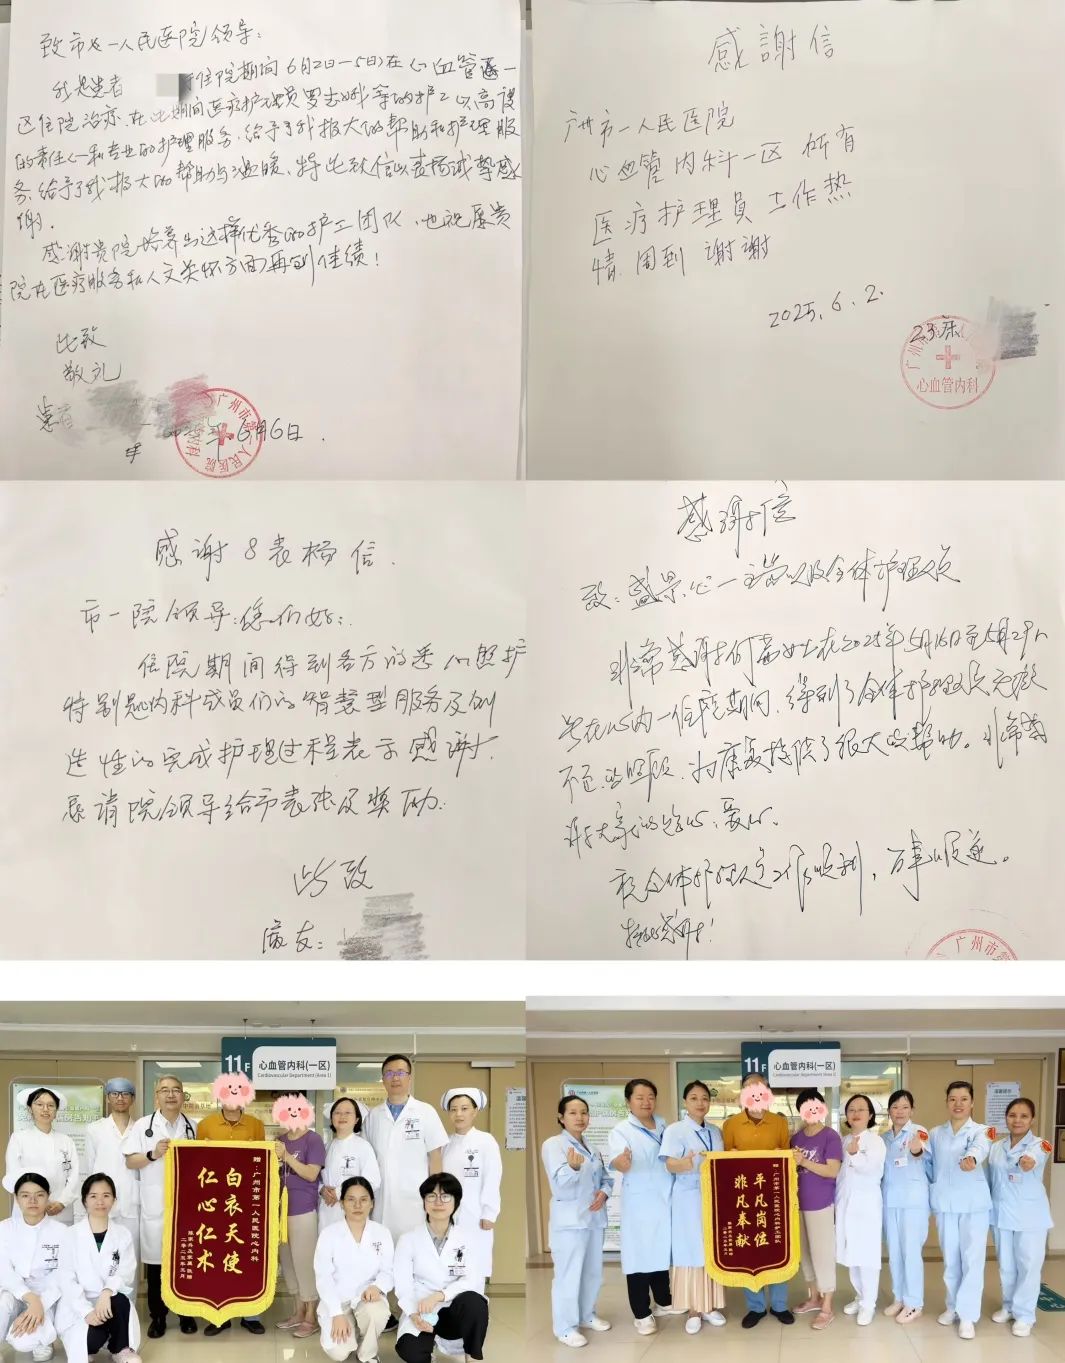 致市第一人民医院领导：
我是患者 住院期间6月2日—5日在心血管一
区住院治疗，在此期间医疗护理员罗 等的护工以高度
的责任心和专业的护理服务，给予了我极大的帮助和护理服
务，给予了我极大的帮助与温暖，特此致信以表扬诚挚感
谢。
感谢贵院培养出这样优秀的护工团队，也祝愿贵
院在医疗服务和人文关怀方面再创佳绩！
此致
敬礼
患者
6月6日
感謝信
广州市一人民医院
心血管内科一区 所有
医疗护理員 工作热
情.周到 謝謝
2025.6.2.
23床
心血管内科
感谢&表扬信
市一院领导：您们好：
住院期间得到各方的悉心照护
特别是内科成员们的智慧型服务及创
造性的完成护理过程表示感谢！
恳请院领导给予表张及奖励：
此致
病友：
感谢信
致：盛景心一主管以及全体护理人员
非常感谢何 女士在2025年5月16日至5月29日
在心内一住院期间，得到了全体护理人员无微
不至的照顾，为康复提供了很大的帮助。非常感
谢大家的 心，爱心。
祝全体护理人员工作顺利，万事顺遂。
广州市第
11F 心血管内科(一区)
Cardiovascular Department (Area 1)
赠：广州市第一人民医院心内科
白衣天使
仁心仁术
二零二五年五月
11F 心血管内科(一区)
Cardiovascular Department (Area 1)
赠：广州市第一人民医院心内科护工团队
平凡岗位
非凡奉献
二零二五年五月